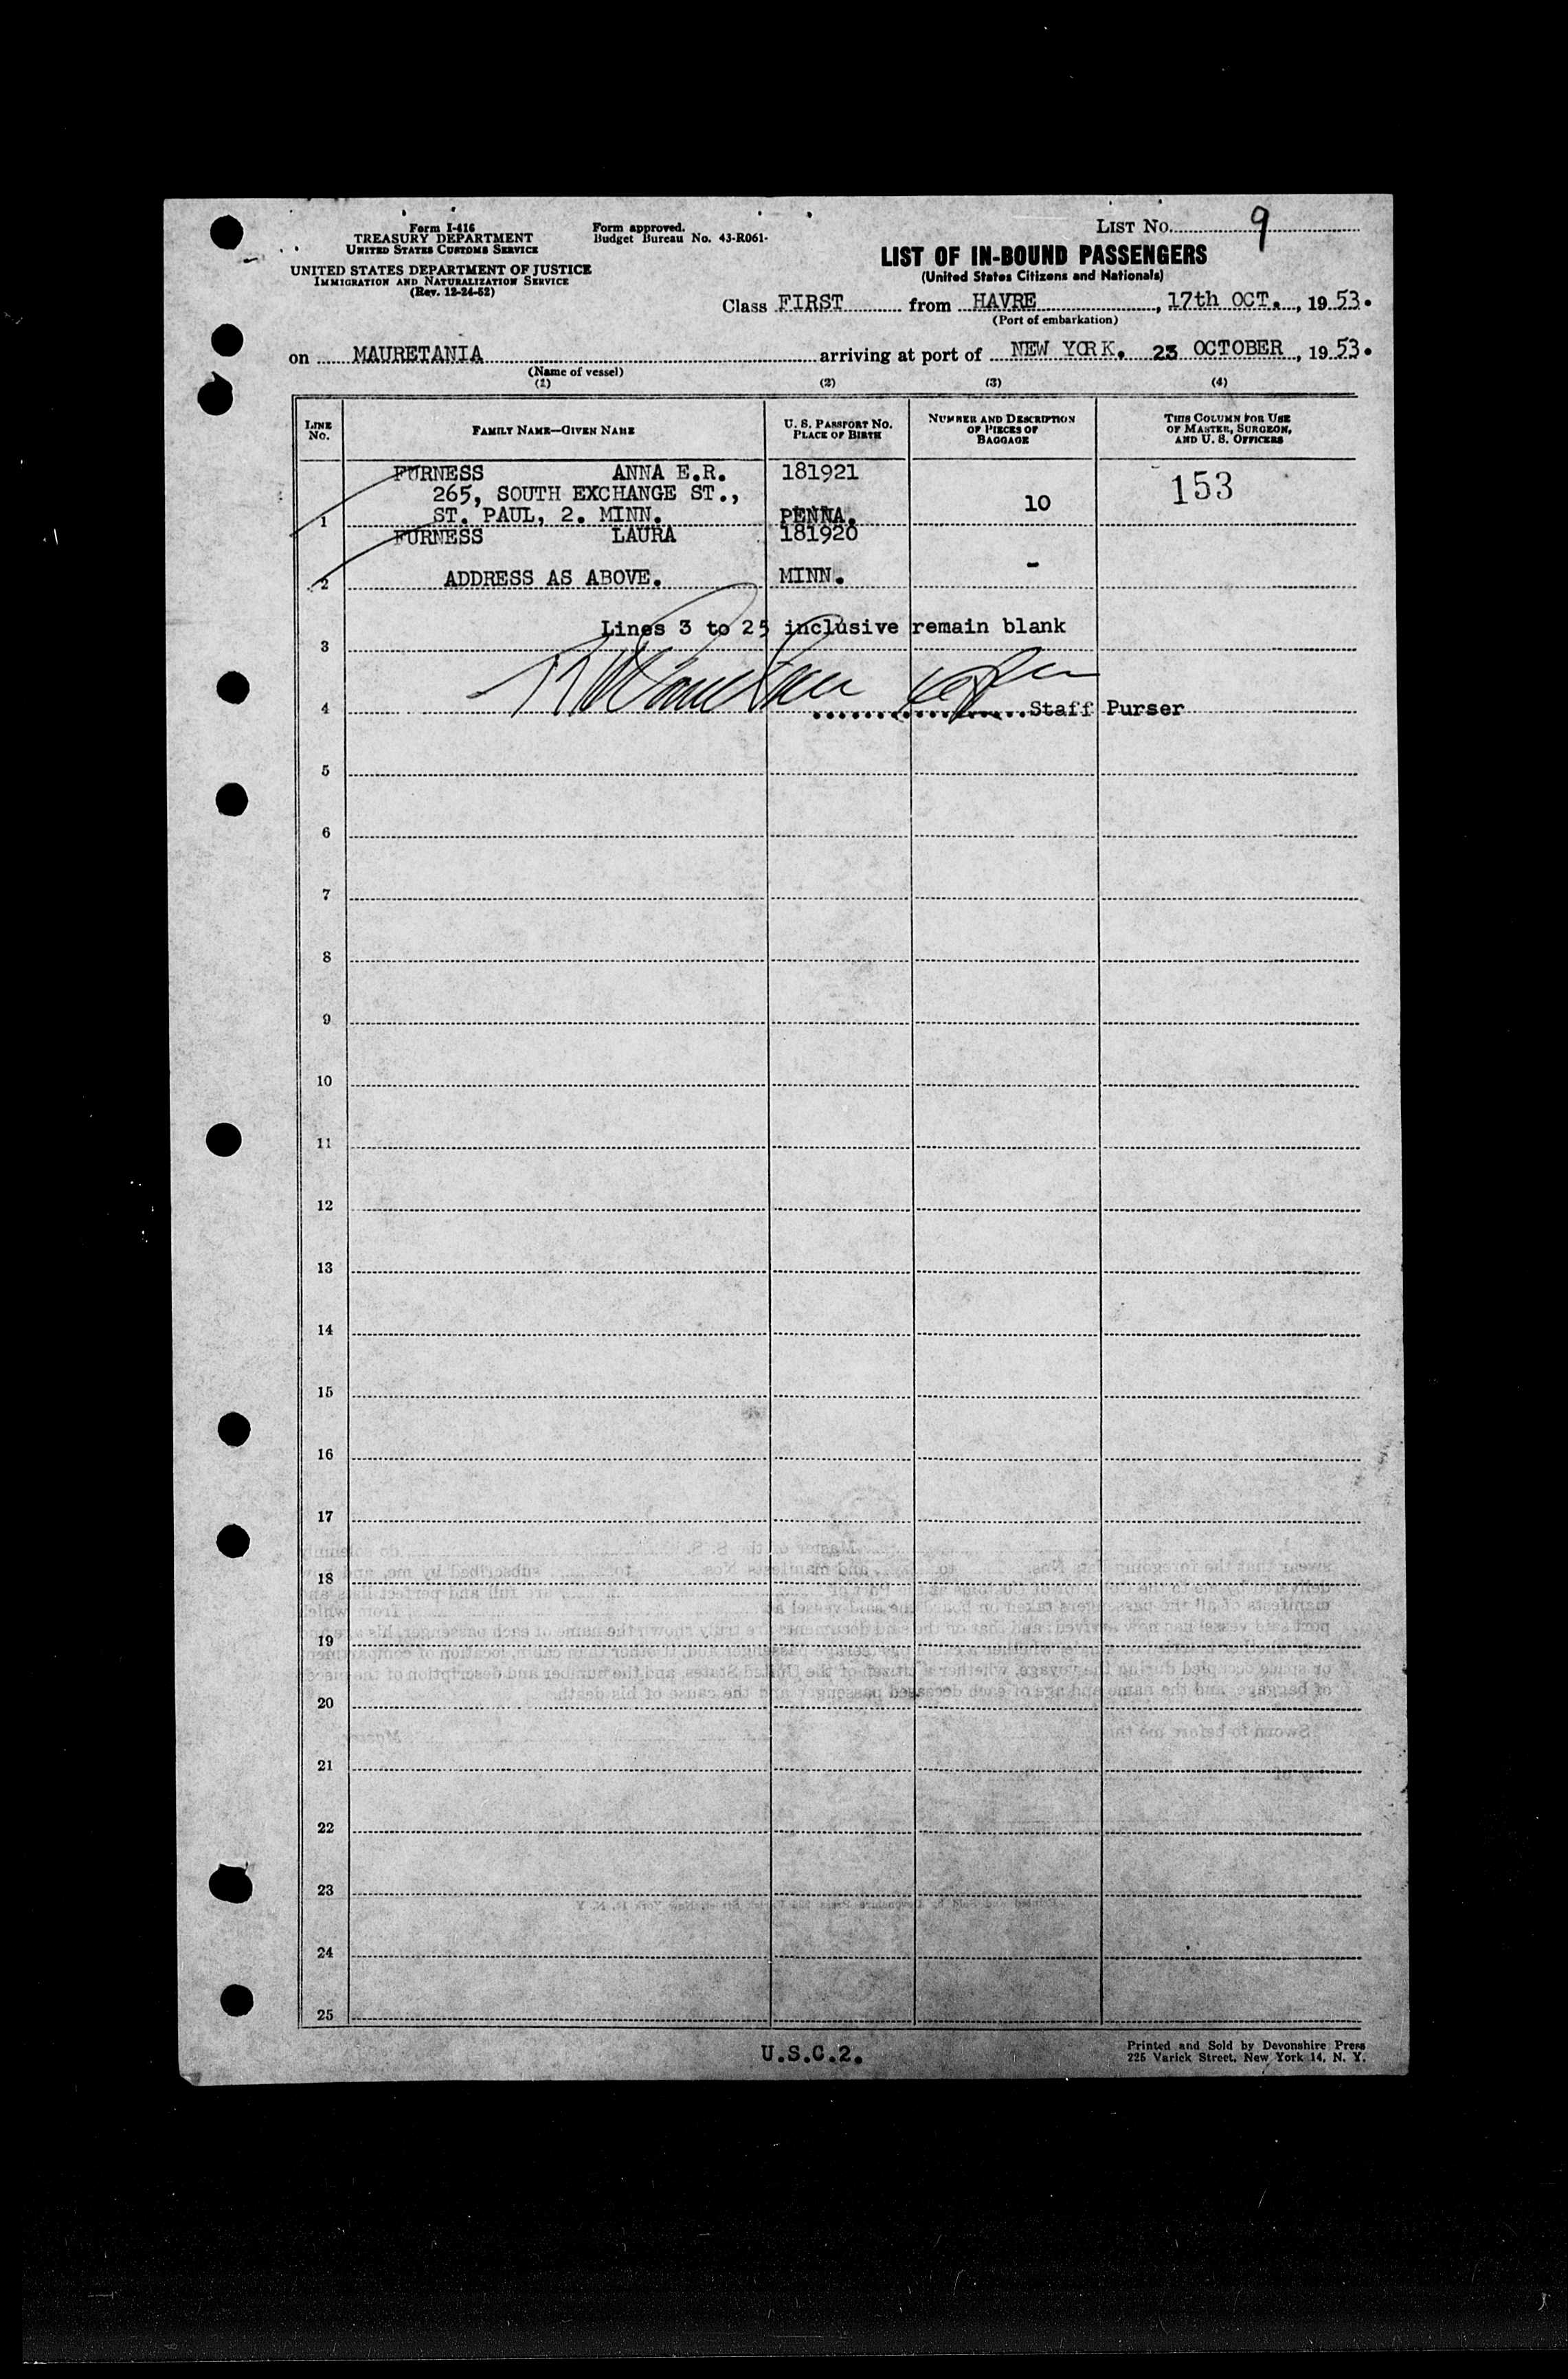 Form I-416
TREASURY DEPARTMENT
UNITED STATES CUSTOMS SERVICE
UNITED STATES DEPARTMENT OF JUSTICE
IMMIGRATION AND NATURALIZATION SERVICE
(Rev. 12-24-52)
Form approved.
Budget Bureau No. 43-R061-
LIST No. 9
LIST OF IN-BOUND PASSENGERS
(United States Citizens and Nationals)
Class FIRST from HAVRE, 17th OCT., 1953.
(Port of embarkation)
on MAURETANIA arriving at port of NEW YORK. 23 OCTOBER, 1953.
(Name of vessel)
(1) (2) (3) (4)
LINE No. FAMILY NAME—GIVEN NAME U. S. PASSPORT No. PLACE OF BIRTH NUMBER AND DESCRIPTION OF PIECES OF BAGGAGE THIS COLUMN FOR USE OF MASTER, SURGEON, AND U. S. OFFICERS
FURNESS ANNA E.R. 181921
265, SOUTH EXCHANGE ST., 10 153
1 ST. PAUL, 2. MINN. PENNA.
FURNESS LAURA 181920
2 ADDRESS AS ABOVE. MINN. -
Lines 3 to 25 inclusive remain blank
3
4 Staff Purser
5
6
7
8
9
10
11
12
13
14
15
16
17
18
19
20
21
22
23
24
25
U.S.C.2.
Printed and Sold by Devonshire Press
225 Varick Street, New York 14, N. Y.